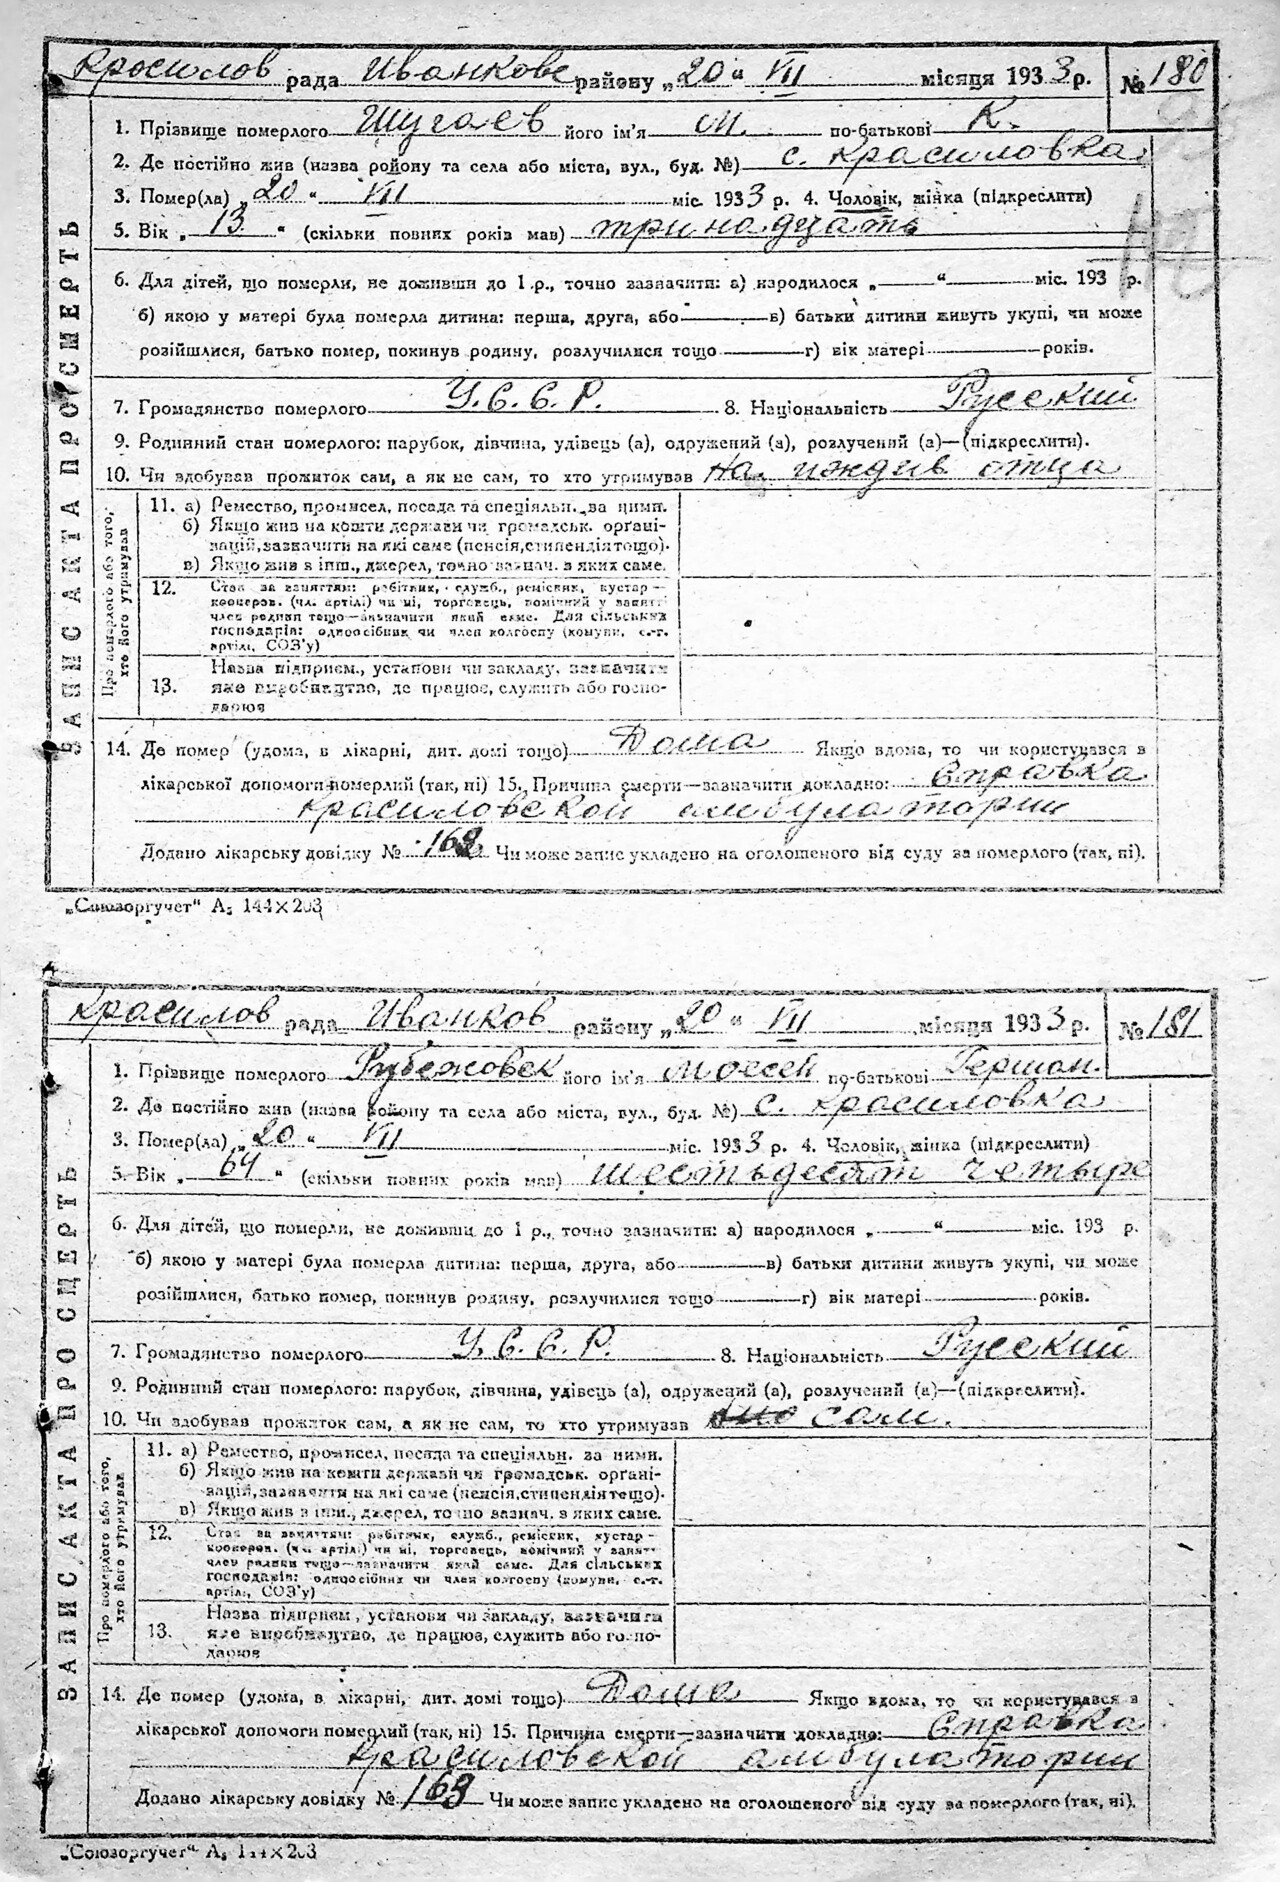 Красилов рада Иванков району „20“ VII місяця 1933 р. № 180
1. Прізвище померлого Шугаев його ім'я М. по-батькові К.
2. Де постійно жив (назва району та села або міста, вул., буд. №) с. Красиловка
3. Помер(ла) „20“ VII міс. 1933 р. 4. Чоловік, жінка (підкреслити)
5. Вік „13“ (скільки повних років мав) тринадцать
6. Для дітей, що померли, не доживши до 1 р., точно зазначити: а) народилося „——“—— міс. 193 р.
б) якою у матері була померла дитина: перша, друга, або—— в) батьки дитини живуть укупі, чи може
розійшлися, батько помер, покинув родину, розлучилися тощо —— г) вік матері —— років.
7. Громадянство померлого У.С.С.Р. 8. Національність Русский
9. Родинний стан померлого: парубок, дівчина, удівець (а), одружений (а), розлучений (а)—(підкреслити).
10. Чи здобував прожиток сам, а як не сам, то хто утримував На иждив отца
11. а) Ремество, промисел, посада та спеціяльн. за ними.
б) Якщо жив на кошти держави чи громадськ. органі-
зацій, зазначити на які саме (пенсія, стипендія тощо).
в) Якщо жив з інш., джерел, точно зазнач. з яких саме.
12. Стан за заняттям: робітник, служб., ремісник, кустар-
кооперов. (чл. артілі) чи ні, торговець, помічний у занятті
член родини тощо—зазначити який саме. Для сільських
господарів: одноосібник чи член колгоспу (комуни, с.-г.
артілі, СОЗ'у)
Назва підприєм., установи чи закладу, зазначити
13. яке виробництво, де працює, служить або госпо-
дарює
Про померлого або того,
хто його утримував
ЗАПИС АКТА ПРО СМЕРТЬ
14. Де помер (удома, в лікарні, дит. домі тощо) Дома Якщо вдома, то чи користувався в
лікарської допомоги померлий (так, ні) 15. Причина смерти—зазначити докладно: Справка
Красиловской амбулатории
Додано лікарську довідку № 162 Чи може запис укладено на оголошеного від суду за померлого (так, ні).
„Союзоргучет“ А5 144×203
Красилов рада Иванков району „20“ VII місяця 1933 р. № 181
1. Прізвище померлого Рубежовск його ім'я Моесей по-батькові Гершон.
2. Де постійно жив (назва району та села або міста, вул., буд. №) с. Красиловка
3. Помер(ла) „20“ VII міс. 1933 р. 4. Чоловік, жінка (підкреслити)
5. Вік „64“ (скільки повних років мав) шестьдесят четыре
6. Для дітей, що померли, не доживши до 1 р., точно зазначити: а) народилося „——“—— міс. 193 р.
б) якою у матері була померла дитина: перша, друга, або—— в) батьки дитини живуть укупі, чи може
розійшлися, батько помер, покинув родину, розлучилися тощо —— г) вік матері —— років.
7. Громадянство померлого У.С.С.Р. 8. Національність Русский
9. Родинний стан померлого: парубок, дівчина, удівець (а), одружений (а), розлучений (а)—(підкреслити).
10. Чи здобував прожиток сам, а як не сам, то хто утримував сам.
11. а) Ремество, промисел, посада та спеціяльн. за ними.
б) Якщо жив на кошти держави чи громадськ. органі-
зацій, зазначити на які саме (пенсія, стипендія тощо).
в) Якщо жив з інш., джерел, точно зазнач. з яких саме.
12. Стан за заняттям: робітник, служб., ремісник, кустар-
кооперов. (чл. артілі) чи ні, торговець, помічний у занятті
член родини тощо—зазначити який саме. Для сільських
господарів: одноосібник чи член колгоспу (комуни, с.-г.
артілі, СОЗ'у)
Назва підприєм., установи чи закладу, зазначити
13. яке виробництво, де працює, служить або госпо-
дарює
Про померлого або того,
хто його утримував
ЗАПИС АКТА ПРО СМЕРТЬ
14. Де помер (удома, в лікарні, дит. домі тощо) Дома Якщо вдома, то чи користувався в
лікарської допомоги померлий (так, ні) 15. Причина смерти—зазначити докладно: Справка
Красиловской амбулатории
Додано лікарську довідку № 163 Чи може запис укладено на оголошеного від суду за померлого (так, ні).
„Союзоргучет“ А5 144×203